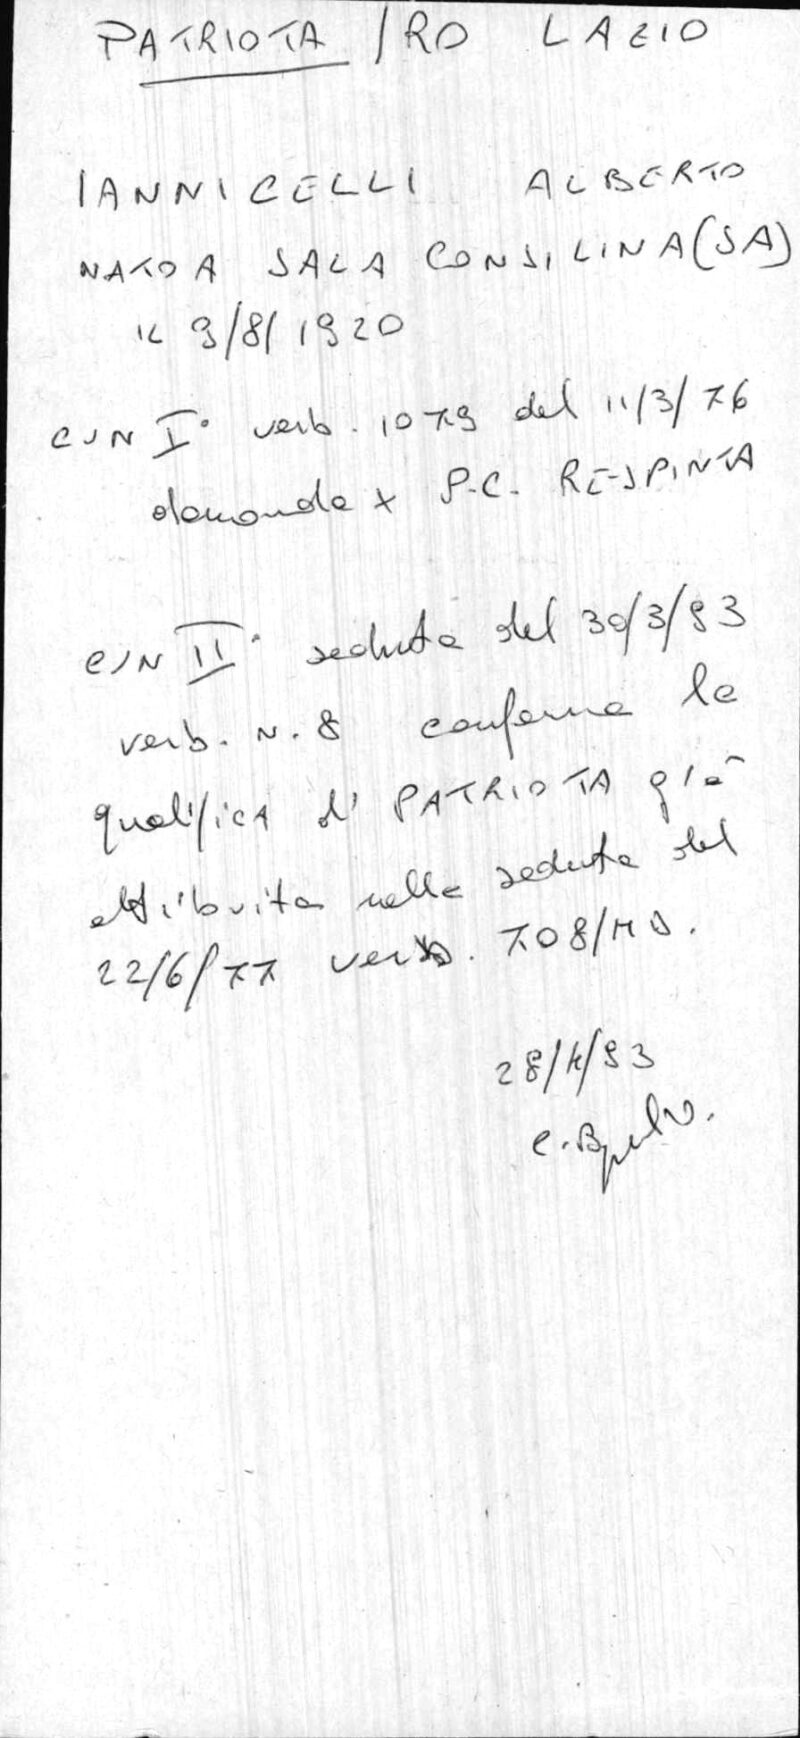 PATRIOTA /RO LAZIO
IANNICELLI ALBERTO
NATO A SALA CONSILINA (SA)
IL 9/8/1920
CSN I° verb. 1079 del 11/3/76
domanda x P.C. RESPINTA
CSN II° seduta del 30/3/93
verb. N. 8 conferma la
qualifica di PATRIOTA già
attribuita nella seduta del
22/6/77 verb. 708/MS.
28/4/93